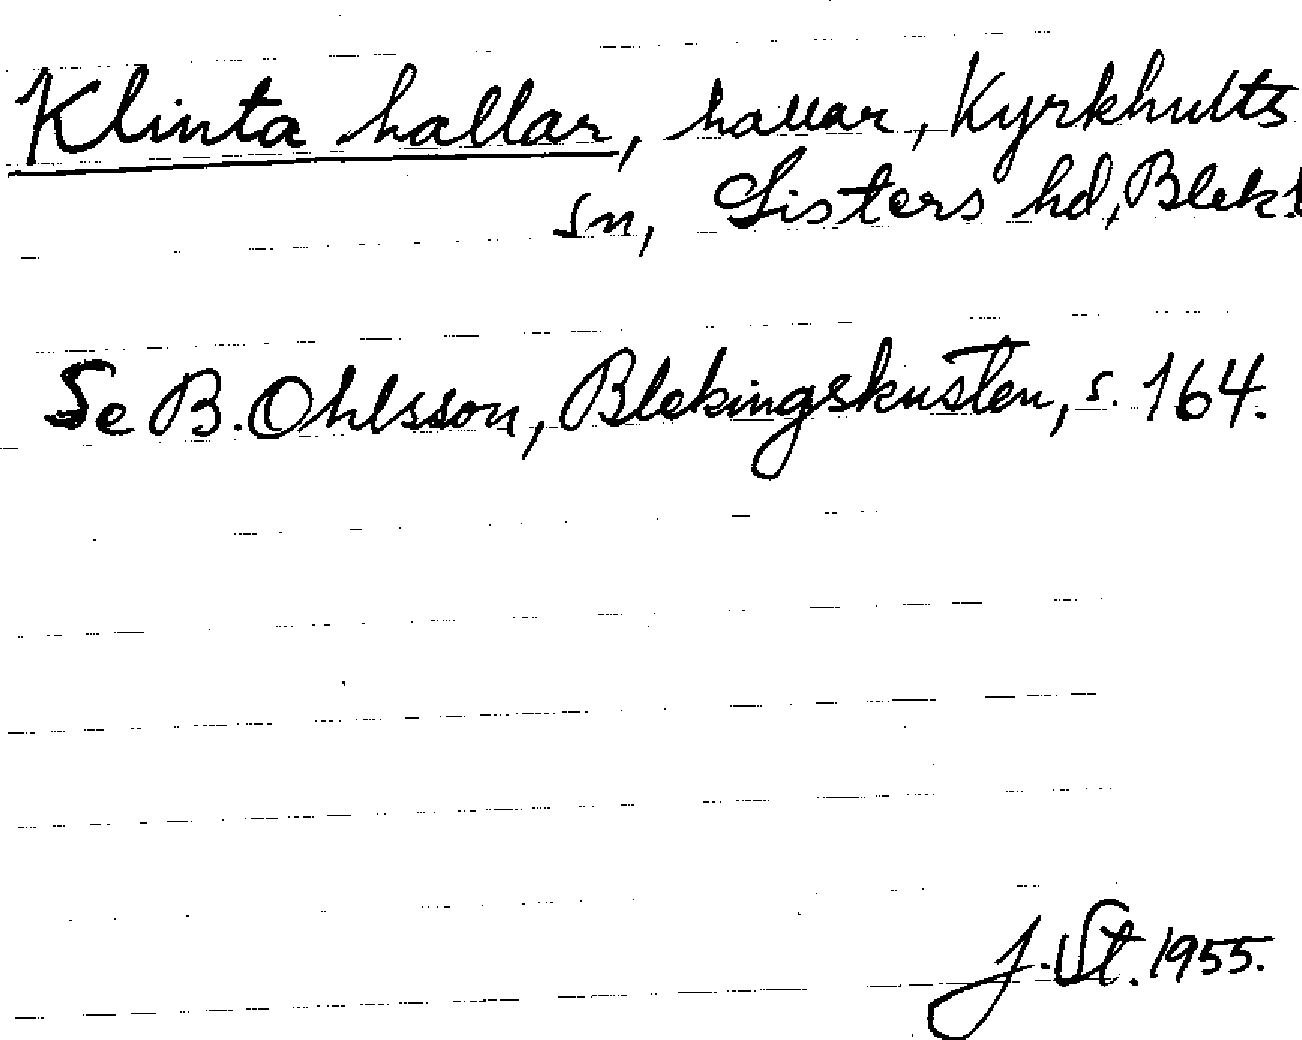 Klinta hallar, hallar, Kyrkhults
sn, Listers hd, Blek
Se B. Ohlsson, Blekingskusten, s. 164.
J. St. 1955.